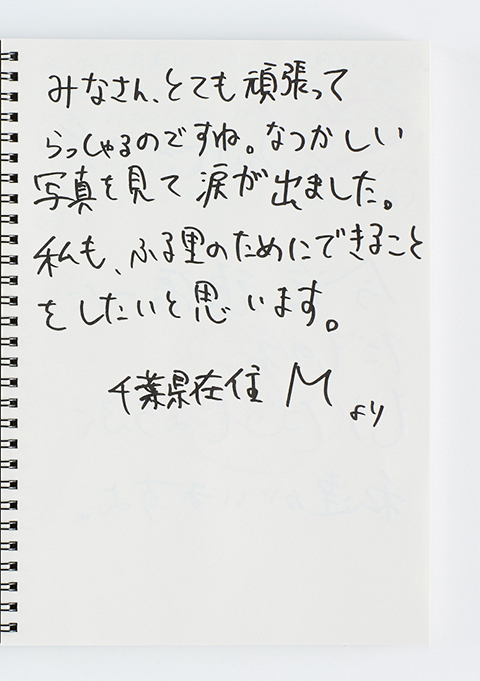 みなさん、とても頑張って
らっしゃるのですね。なつかしい
写真を見て涙が出ました。
私も、ふる里のためにできること
をしたいと思います。
千葉県在住 M より